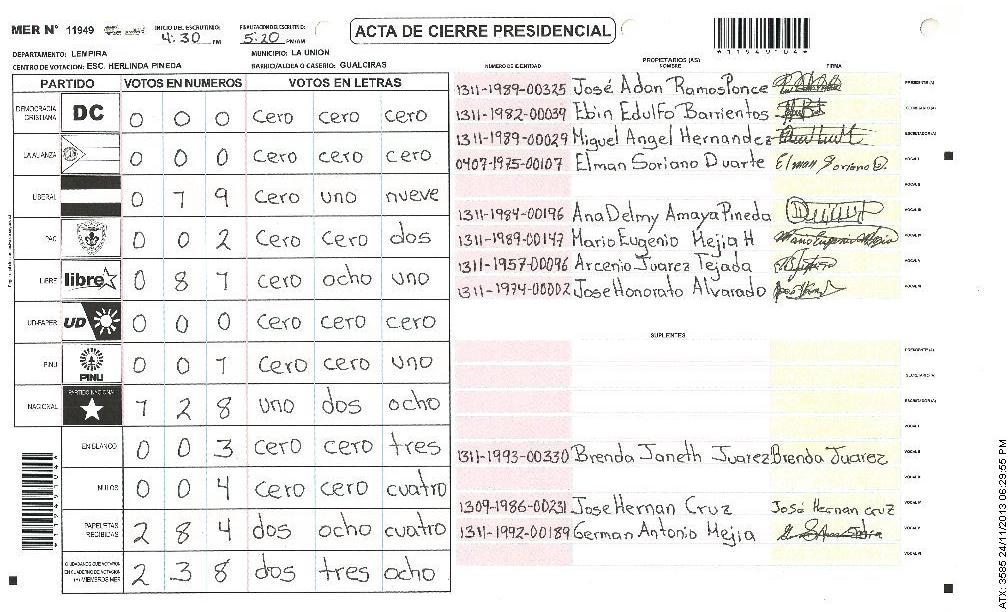 MER N° 11949
INICIO DEL ESCRUTINIO: 4:30 PM
FINALIZACION DEL ESCRUTINIO: 5:20 PM/AM
ACTA DE CIERRE PRESIDENCIAL
*11949104*
DEPARTAMENTO: LEMPIRA
MUNICIPIO: LA UNION
CENTRO DE VOTACION: ESC. HERLINDA PINEDA
BARRIO/ALDEA O CASERIO: GUALCIRAS
PARTIDO VOTOS EN NUMEROS VOTOS EN LETRAS
DEMOCRACIA CRISTIANA DC 0 0 0 cero cero cero
LA ALIANZA 0 0 0 cero cero cero
LIBERAL 0 1 9 cero uno nueve
PAC 0 0 2 cero cero dos
LIBRE libre 0 8 1 cero ocho uno
UD-FAPER UD 0 0 0 cero cero cero
PINU PINU 0 0 1 cero cero uno
NACIONAL PARTIDO NACIONAL 1 2 8 uno dos ocho
EN BLANCO 0 0 3 cero cero tres
NULOS 0 0 4 cero cero cuatro
PAPELETAS RECIBIDAS 2 8 4 dos ocho cuatro
CIUDADANOS QUE VOTARON EN CUADERNO DE VOTACION (+) MIEMBROS MER 2 3 8 dos tres ocho
*11949104*
PROPIETARIOS (AS)
NUMERO DE IDENTIDAD NOMBRE FIRMA
1311-1989-00325 José Adan Ramos Ponce PRESIDENTE (A)
1311-1982-00039 Ebin Edulfo Barrientos SECRETARIO (A)
1311-1989-00029 Miguel Angel Hernandez ESCRUTADOR (A)
0407-1975-00107 Elman Soriano Duarte Elman Soriano D. VOCAL I
VOCAL II
1311-1984-00196 Ana Delmy Amaya Pineda VOCAL III
1311-1989-00147 Mario Eugenio Mejia H Mario Eugenio Mejia VOCAL IV
1311-1957-00096 Arcenio Juarez Tejada VOCAL V
1311-1974-00002 Jose Honorato Alvarado VOCAL VI
SUPLENTES
PRESIDENTE (A)
SECRETARIO (A)
ESCRUTADOR (A)
VOCAL I
1311-1993-00330 Brenda Janeth Juarez Brenda Juarez VOCAL II
VOCAL III
1309-1986-00231 Jose Hernan Cruz José Hernan cruz VOCAL IV
1311-1992-00189 German Antonio Mejia VOCAL V
VOCAL VI
ATX: 3585 24/11/2013 06:29:55 PM